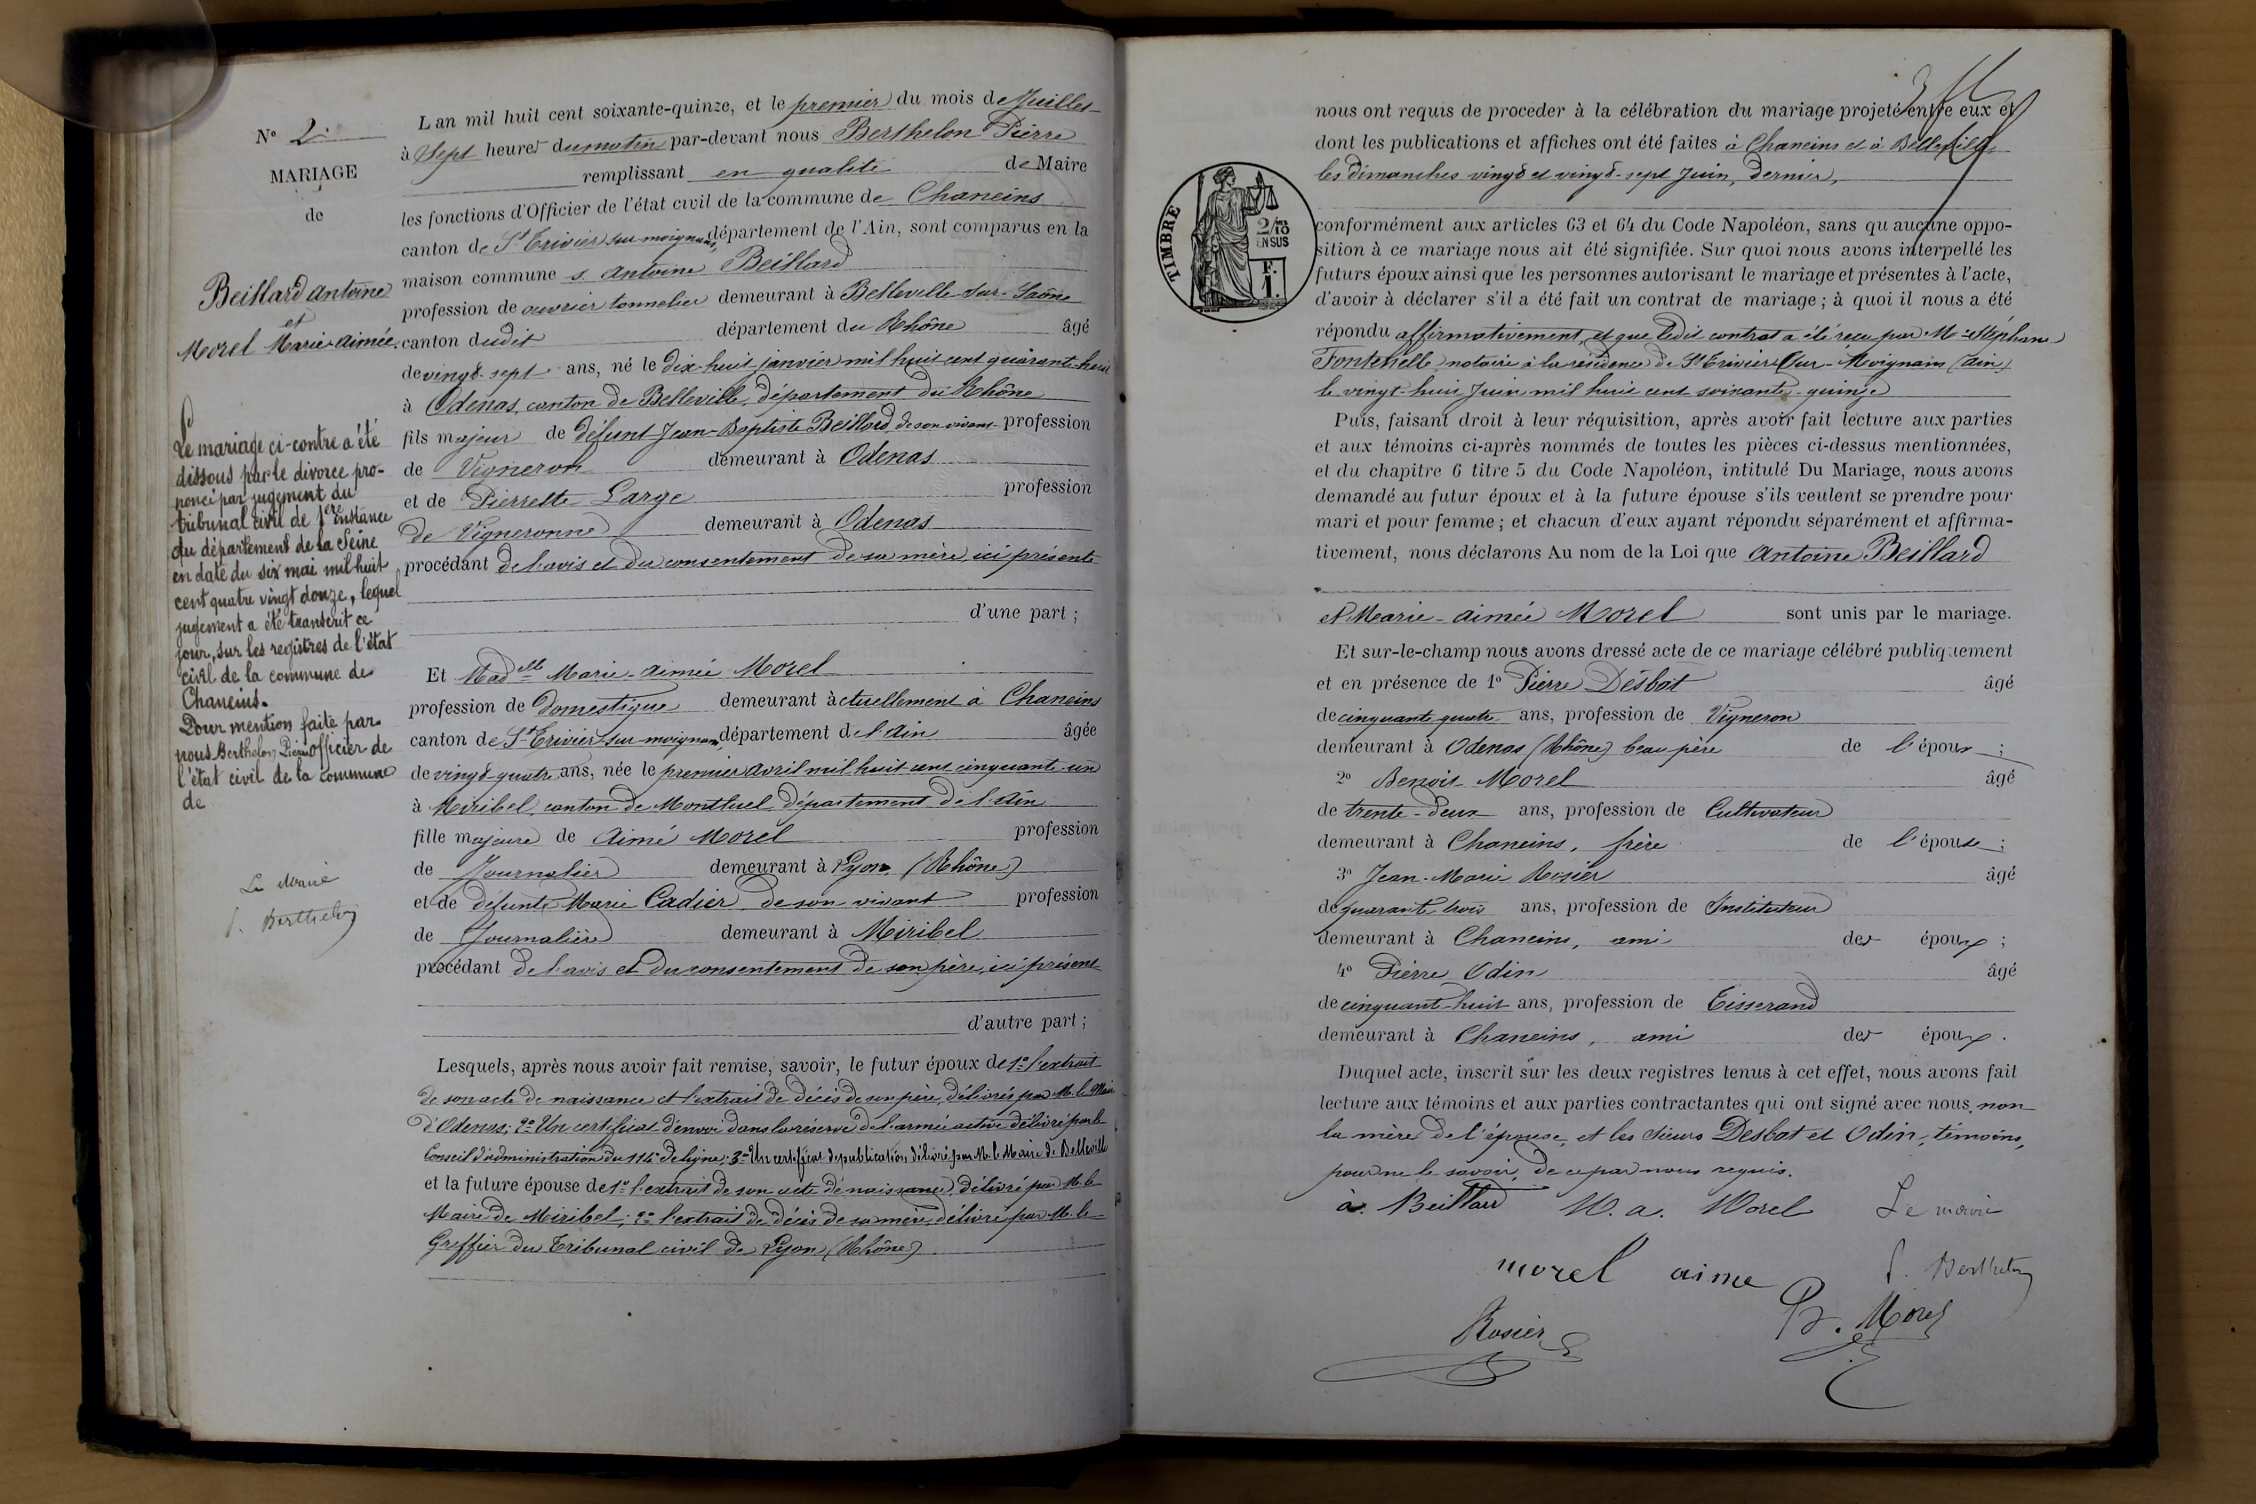 N° 2.
MARIAGE
de
Beillard Antoine
et
Morel Marie-Aimée.
Le mariage ci-contre a été
dissous par le divorce pro-
noncé par jugement du
tribunal civil de 1ère instance
du département de la Seine
en date du six mai mil huit
cent quatre vingt douze, lequel
jugement a été transcrit ce
jour, sur les registres de l'état
civil de la commune de
Chaneins.
Pour mention faite par
nous Berthelon Pierre officier de
l'état civil de la commune
de
Le Maire
P. Berthelon
L'an mil huit cent soixante-quinze, et le premier du mois de Juillet
à sept heures du matin par-devant nous Berthelon Pierre
remplissant en qualité de Maire
les fonctions d'Officier de l'état civil de la commune de Chaneins
canton de St Trivier sur moignans, département de l'Ain, sont comparus en la
maison commune s. Antoine Beillard
profession de ouvrier tonnelier demeurant à Belleville-sur-Saône
canton dudit département du Rhône âgé
de vingt-sept ans, né le dix-huit janvier mil huit cent quarante-huit
à Odenas, canton de Belleville, département du Rhône
fils majeur de défunt Jean-Baptiste Beillard, de son vivant profession
de Vigneron demeurant à Odenas
et de Pierrette Large profession
de Vigneronne demeurant à Odenas
procédant de l'avis et du consentement de sa mère, ici présente
d'une part ;
Et Madelle Marie-Aimée Morel
profession de domestique demeurant actuellement à Chaneins
canton de St Trivier-sur-moignans, département de l'Ain âgée
de vingt-quatre ans, née le premier avril mil huit cent cinquante-un
à Miribel, canton de Montluel, département de l'Ain
fille majeure de Aimé Morel profession
de Journalier demeurant à Lyon (Rhône)
et de défunte Marie Cadier, de son vivant profession
de Journalière demeurant à Miribel
procédant de l'avis et du consentement de son père, ici présent
d'autre part ;
Lesquels, après nous avoir fait remise, savoir, le futur époux de 1° l'extrait
de son acte de naissance et l'extrait de décès de son père, délivrés par M. le Maire
d'Odenas ; 2° Un certificat d'envoi dans la réserve de l'armée active délivré par le
Conseil d'administration du 114e de ligne ; 3° Un certificat de publication, délivré par M. le Maire de Belleville
et la future épouse de 1° l'extrait de son acte de naissance, délivré par M. le
Maire de Miribel ; 2° l'extrait de décès de sa mère, délivré par M. le
Greffier du Tribunal civil de Lyon (Rhône)
nous ont requis de procéder à la célébration du mariage projeté entre eux et
dont les publications et affiches ont été faites à Chaneins et à Belleville,
les dimanches vingt et vingt-sept Juin, dernier,
TIMBRE
2/10
EN SUS
F.
1.
conformément aux articles 63 et 64 du Code Napoléon, sans qu'aucune oppo-
sition à ce mariage nous ait été signifiée. Sur quoi nous avons interpellé les
futurs époux ainsi que les personnes autorisant le mariage et présentes à l'acte,
d'avoir à déclarer s'il a été fait un contrat de mariage ; à quoi il nous a été
répondu affirmativement, et que ledit contrat a été reçu par Me Stéphane
Fontenelle, notaire à la résidence de St Trivier-sur-Moignans (Ain)
le vingt-huit Juin mil huit cent soixante-quinze
Puis, faisant droit à leur réquisition, après avoir fait lecture aux parties
et aux témoins ci-après nommés de toutes les pièces ci-dessus mentionnées,
et du chapitre 6 titre 5 du Code Napoléon, intitulé Du Mariage, nous avons
demandé au futur époux et à la future épouse s'ils veulent se prendre pour
mari et pour femme ; et chacun d'eux ayant répondu séparément et affirma-
tivement, nous déclarons Au nom de la Loi que Antoine Beillard
et Marie-Aimée Morel sont unis par le mariage.
Et sur-le-champ nous avons dressé acte de ce mariage célébré publiquement
et en présence de 1° Pierre Desbat âgé
de cinquante quatre ans, profession de Vigneron
demeurant à Odenas (Rhône) beau père de l'époux ;
2° Benoit Morel âgé
de trente-deux ans, profession de Cultivateur
demeurant à Chaneins, frère de l'épouse ;
3° Jean-Marie Rosier âgé
de quarante trois ans, profession de Instituteur
demeurant à Chaneins, ami des époux ;
4° Pierre Odin âgé
de cinquante-huit ans, profession de Tisserand
demeurant à Chaneins, ami des époux.
Duquel acte, inscrit sur les deux registres tenus à cet effet, nous avons fait
lecture aux témoins et aux parties contractantes qui ont signé avec nous, non
la mère de l'épouse, et les sieurs Desbat et Odin, témoins,
pour ne le savoir, de ce par nous requis.
a. Beillard M. a. Morel Le maire
morel aime P. Berthelon
Rosier B. Morel